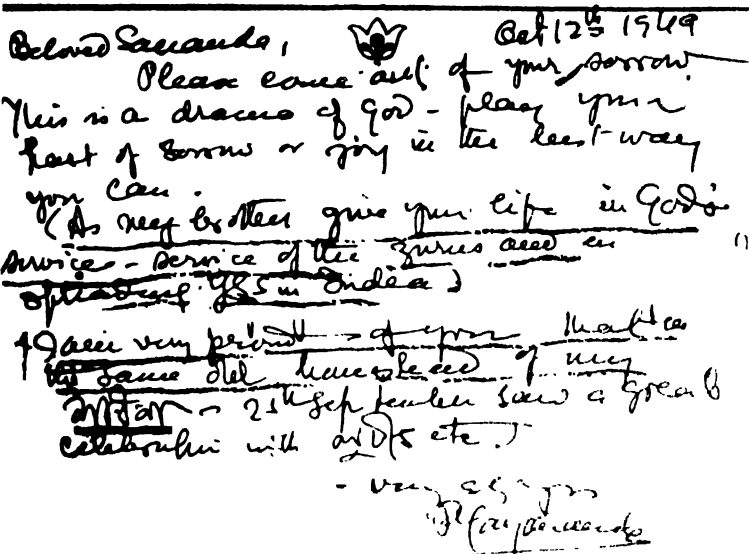 Oct 12th 1949
Beloved Sananda,
Please come out of your sorrow.
This is a drama of God - play your
part of sorrow or joy in the best way
you can.
(As my brother give your life in God's
service - service of the gurus and in
spreading YSS in India)
I am very proud of you that in
the same old homestead of my
25th September saw a great
celebration with etc.)
- very